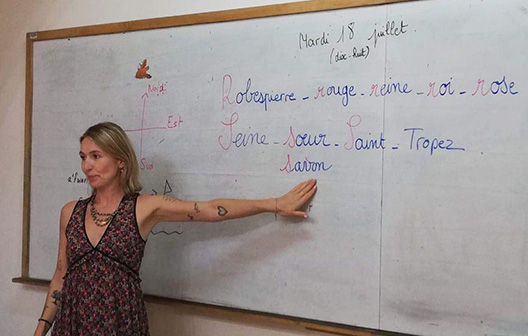 Mardi 18 juillet.
(dix-huit)
Nord
Robespierre - rouge - reine - roi - rose
Est
Seine - sœur - Saint - Tropez
Sud
savon